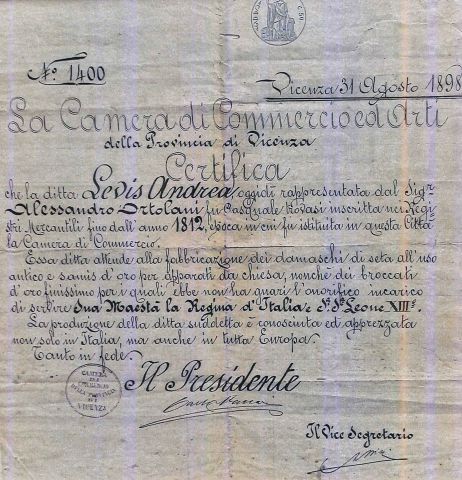 C. 50
No. 1400
Vicenza 31 Agosto 1898
La Camera di Commercio ed Arti
della Provincia di Vicenza
Certifica
che la ditta Levis Andrea, oggidì rappresentata dal Sigr
Alessandro Ortolani fu Pasquale trovasi inscritta nei Regi
stri Mercantili fino dall'anno 1812, epoca in cui fu istituita in questa Città
la Camera di Commercio.
Essa ditta attende alla fabbricazione dei damaschi di seta all'uso
antico e samis d'oro per apparati da chiesa, nonchè dei broccati
d'oro finissimo per i quali ebbe non ha guari l'onorifico incarico
di servire Sua Maestà la Regina d'Italia e S. Sà Leone XIII°.
La produzione della ditta suddetta è conosciuta ed apprezzata
non solo in Italia, ma anche in tutta Europa.
Tanto in fede.
CAMERA
DI
COMMERCIO
DELLA PROVINCIA
DI
VICENZA
Il Presidente
Il Vice Segretario